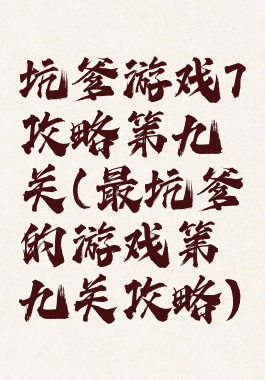 坑爹游戏7
攻略第九
关(最坑爹
的游戏第
九关攻略)